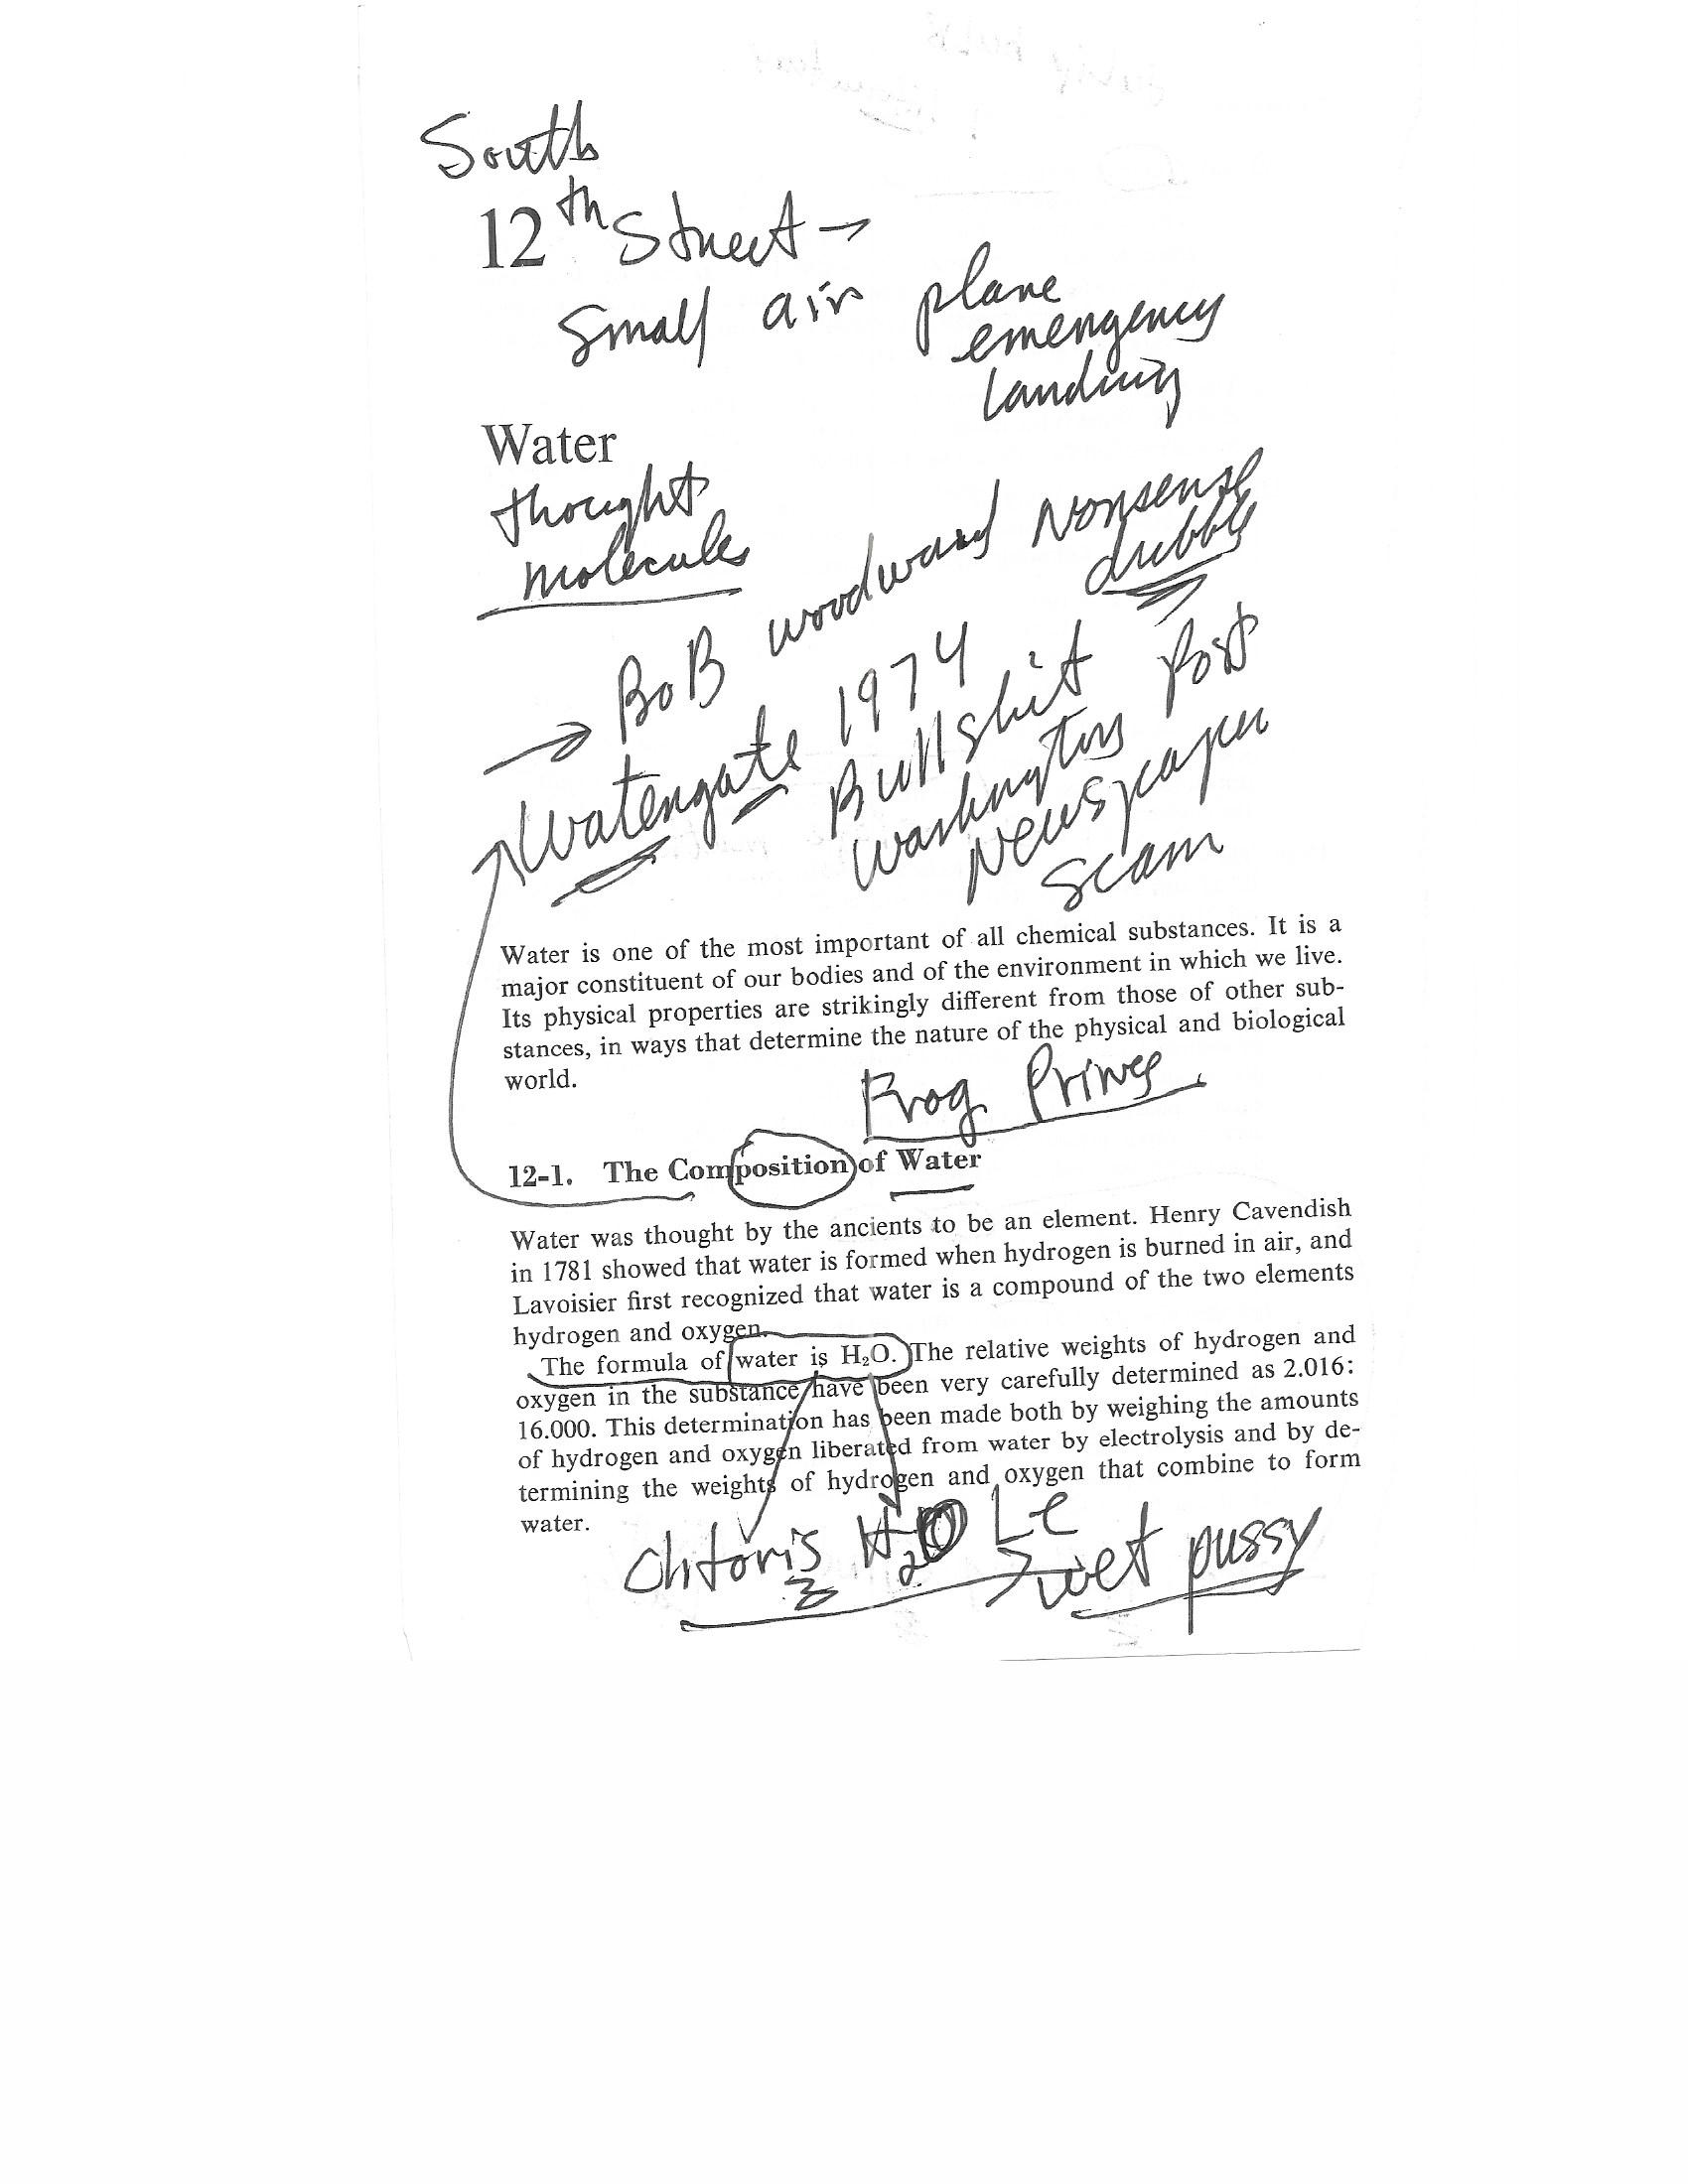 South
12th Street →
Small air plane
emergency
landing
Water
thought
molecules
→ BoB woodward Nonsense
dribble
Watergate 1974
Bullshit
Washington Post
Newspaper
Scam
Water is one of the most important of all chemical substances. It is a
major constituent of our bodies and of the environment in which we live.
Its physical properties are strikingly different from those of other sub-
stances, in ways that determine the nature of the physical and biological
world.
Frog
12-1. The Composition of Water
Water was thought by the ancients to be an element. Henry Cavendish
in 1781 showed that water is formed when hydrogen is burned in air, and
Lavoisier first recognized that water is a compound of the two elements
hydrogen and oxygen.
The formula of water is H₂O. The relative weights of hydrogen and
oxygen in the substance have been very carefully determined as 2.016:
16.000. This determination has been made both by weighing the amounts
of hydrogen and oxygen liberated from water by electrolysis and by de-
termining the weights of hydrogen and oxygen that combine to form
water.
Clitoris H₂O Le
wet pussy